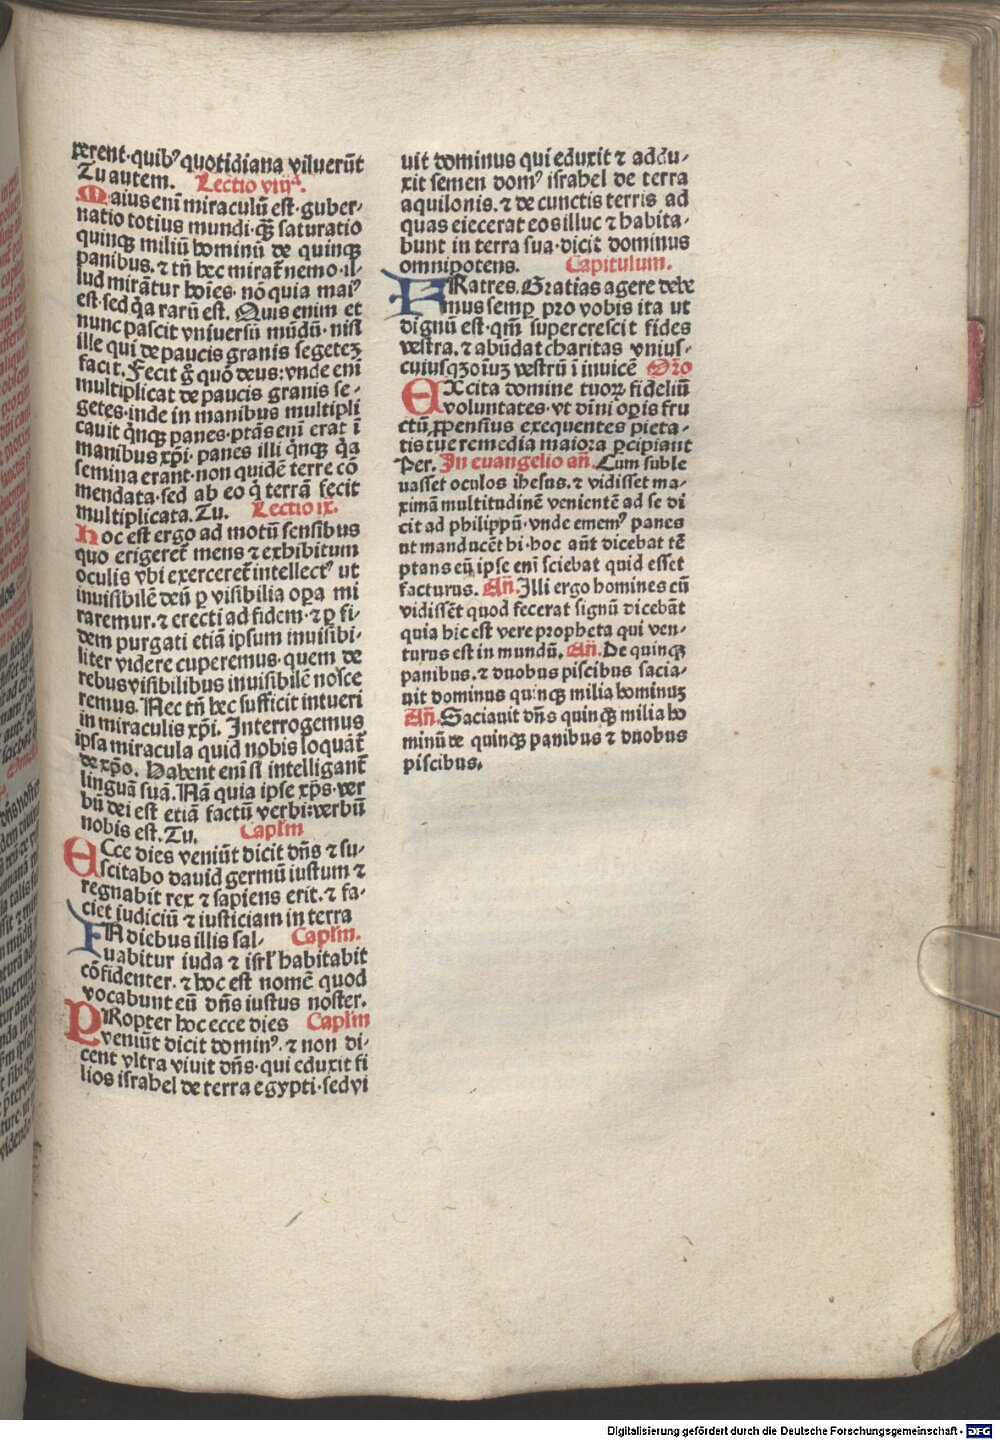 xerent·quibꝰ quotidiana viluerūt
Tu autem. Lectio viijª.
Maius enī miraculū est·guber-
natio totius mundi·q̄ꝫ saturatio
quinqꝫ miliū hominū de quinqꝫ
panibus.⁊ tn̄ hec mirat̄ nemo·il-
lud mirātur hoīes·nō quia maiꝰ
est·sed q̄a rarū est. Quis enim et
nunc pascit vniuersū mūdū·nisi
ille qui de paucis granis segetes
facit. Fecit g̊ quō deus: vnde enī
multiplicat de paucis granis se-
getes·inde in manibus multipli
cauit q̄nqꝫ panes·ptās enī erat ī
manibus xp̄i·panes illi q̄nqꝫ q̄a
semina erant·non quidē terre cō
mendata·sed ab eo q̄ terrā fecit
multiplicata. Tu. Lectio ix.
Hoc est ergo ad motū sensibus
quo erigeret̄ mens ⁊ exhibitum
oculis vbi exerceret̄ intellectꝰ ut
inuisibilē deū ꝑ visibilia oꝑa mi
raremur.⁊ erecti ad fidem·⁊ ꝑ fi-
dem purgati etiā ipsum inuisibi-
liter videre cuperemus·quem de
rebus visibilibus inuisibilē nosce
remus. Nec tn̄ hec sufficit intueri
in miraculis xp̄i. Interrogemus
ipsa miracula quid nobis loquāt̄
de xp̄o. Habent enī si intelligant̄
linguā suā. Nā quia ipse xp̄s·ver
bū dei est etiā factū verbi: verbū
nobis est. Tu. Capl̄m
ECce dies veniūt dicit dn̄s ⁊ su-
scitabo dauid germū iustum ⁊
regnabit rex ⁊ sapiens erit.⁊ fa-
ciet iudiciū ⁊ iusticiam in terra
IN diebus illis sal- Capl̄m.
uabitur iuda ⁊ isrl̄ habitabit
cōfidenter.⁊ hoc est nomē quod
vocabunt eū dn̄s iustus noster.
PRopter hoc ecce dies Capl̄m
veniūt dicit dominꝰ.⁊ non di-
cent vltra viuit dn̄s·qui eduxit fi
lios israhel de terra egypti·sed vi
uit dominus qui eduxit ⁊ addu-
xit semen domꝰ israhel de terra
aquilonis.⁊ de cunctis terris ad
quas eiecerat eos illuc ⁊ habita-
bunt in terra sua·dicit dominus
omnipotens. Capitulum.
FRatres. Gratias agere debe
mus semꝑ pro vobis ita ut
dignū est·qm̄ supercrescit fides
vestra.⁊ abūdat charitas vnius-
cuiusqꝫ oīuꝫ vestrū ī inuicē Oro
EXcita domine tuoꝝ fideliū
voluntates·vt diuī oꝑis fru
ctū ꝓpensius exequentes pieta-
tis tue remedia maiora ꝑcipiant
Per. In euangelio an̄. Cum suble
uasset oculos ihesus.⁊ vidisset ma-
ximā multitudinē venientē ad se di
cit ad philippū·vnde ememꝰ panes
ut manducēt hi·hoc aūt dicebat tē
ptans eū ipse enī sciebat quid esset
facturus. An̄. Illi ergo homines cū
vidissēt quod fecerat signū dicebāt
quia hic est vere propheta qui ven-
turus est in mundū. An̄. De quinqꝫ
panibus.⁊ duobus piscibus sacia-
uit dominus quinqꝫ milia hominuꝫ
An̄. Saciauit dn̄s quinqꝫ milia ho
minū de quinqꝫ panibus ⁊ duobus
piscibus.
Digitalisierung gefördert durch die Deutsche Forschungsgemeinschaft - DFG